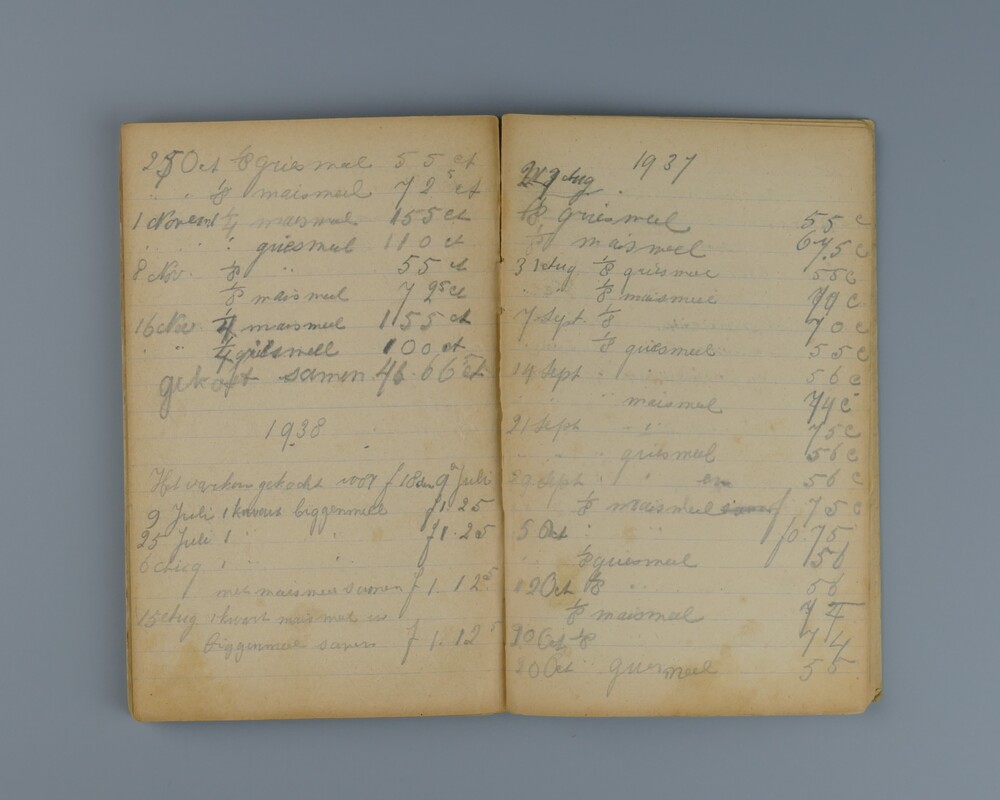 25 Oct 1/8 griesmeel 55 ct
" " 1/8 maismeel 72 5 ct
1 Novem 1/4 maismeel 155 ct
" " " griesmeel 110 ct
8 Nov. 1/8 " 55 ct
1/8 maismeel 7 25 ct
16 Nov 1/4 maismeel 155 ct
" " 1/4 griesmeel 100 ct
gekoft samen 66 5 ct
1938
Het varken gekocht voor f 18 9 Juli
9 Juli 1 kwart biggenmeel f 1.25
25 Juli 1 " " f 1.25
6 Aug 1
met maismeel samen f 1.12 5
15 Aug 1 kwart maismeel en
biggenmeel samen f 1.12 5
1937
Aug
1/8 griesmeel 55 c
1/8 maismeel 67.5 c
31 Aug 1/8 griesmeel 55 c
" " 1/8 maismeel c
7 Sept 1/8 70 c
1/8 griesmeel 55 c
14 Sept " " 56 c
" " maismeel 74 c
21 Sept " " 75 c
" " griesmeel 56 c
Sept " " en 56 c
1/8 maismeel 75 c
5 Oct " " f 0.75
" 1/8 griesmeel 56
12 Oct 1/8 " 56
1/8 maismeel 74
Oct 1/8 74
20 Oct griesmeel 55